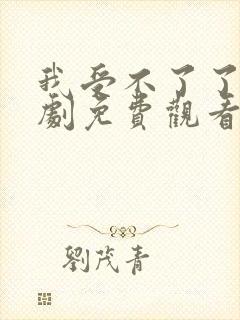 我受不了了
劇免費觀看
劉茂青